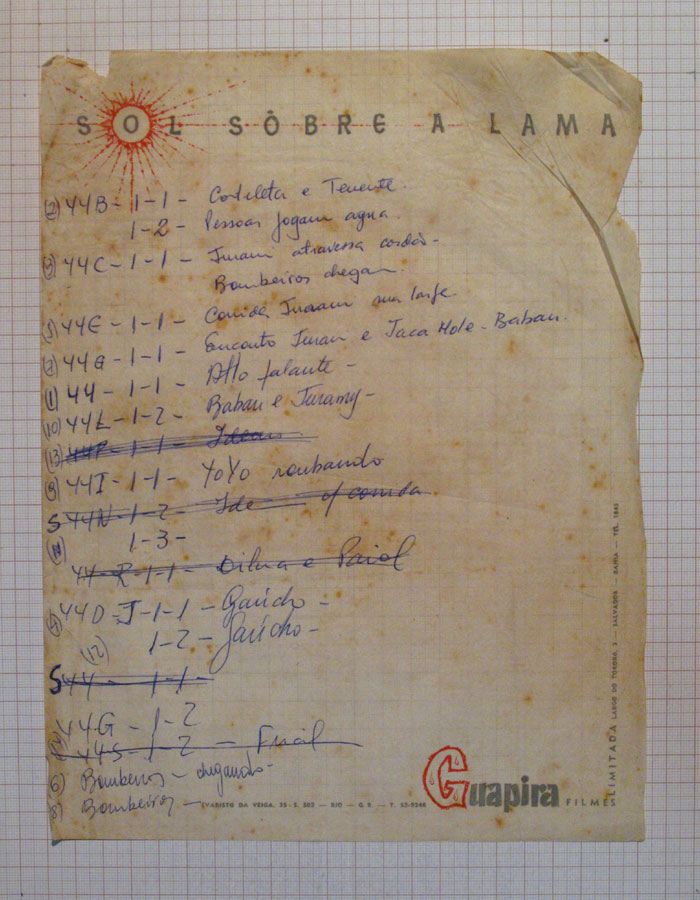 SOL SÔBRE A LAMA
(2) 44B - 1-1 - Costeleta e Tenente.
1-2 - Pessoas jogam agua.
(3) 44C - 1-1 - Jurani atravessa cordão -
Bombeiros chegam.
(5) 44E - 1-1 - Comida Jurani sua
(7) 44G - 1-1 - Encontro Jurani e Jaca Mole - Baban.
(1) 44 - 1-1 - Alto falante -
(10) 44L - 1-2 - Baban e Juramy -
(13) 44P - 1-1 -
(9) 44I - 1-1 - YoYo roubando
S 44N - 1-2 - Ide c/ comida
1-3 -
44-R-1-1 - Dilma e Paiol
44D-J-1-1 - Gaúcho -
(12) 1-2 - Gaúcho -
S 44 - 1-1 -
44G - 1-2
44S - 1-2 - Fuzil
6) Bombeiros - chegando -
8) Bombeiros -
EVARISTO DA VEIGA, 35 - S. 202 — RIO — G B — T. 52-9246
Guapira FILMES LIMITADA LARGO DO TEODORO, 3 — SALVADOR BAHIA — TEL. 1845